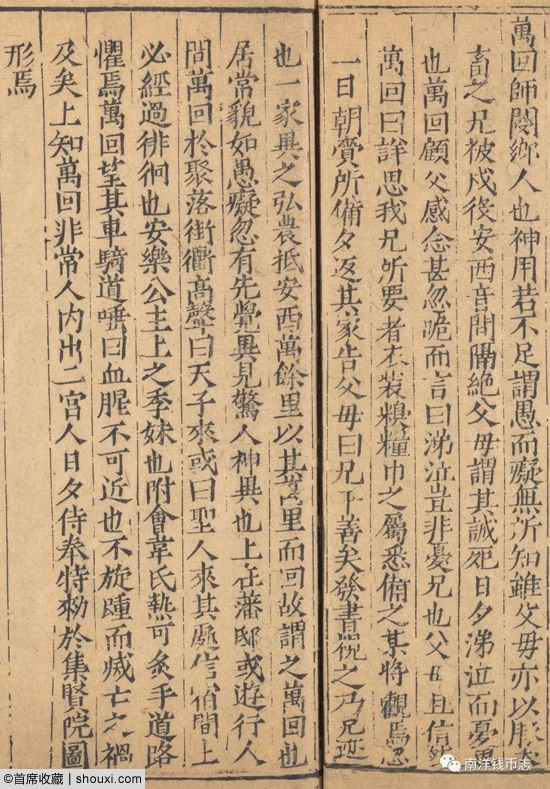 萬回師閿鄉人也神用若不足謂愚而癡無所知雖父母亦以豚犬
畜之兄被戍役安西音問隔絕父母謂其誠死日夕涕泣而憂思
也萬回顧父感念甚忽跪而言曰涕泣豈非憂兄也父母且信然
萬回曰詳思我兄所要者衣裝糗糧巾之屬悉俻之某將覲焉忽
一日朝賫所俻夕返其家告父母曰兄平善矣發書視之乃兄迹
也一家異之弘農抵安西萬餘里以其萬里而回故謂之萬回也
居常貌如愚癡忽有先覺異見驚人神異也上在藩邸或遊行人
間萬回於聚落街衢高聲曰天子來或曰聖人來其處信宿間上
必經過徘徊也安樂公主上之季妹也附會韋氏熱可炙手道路
懼焉萬回望其車騎道唾曰血腥不可近也不旋踵而滅亡之禍
及矣上知萬回非常人內出二宮人日夕侍奉特勑於集賢院圖
形焉
南洋钱币志
@首席收藏 | shouxi.com